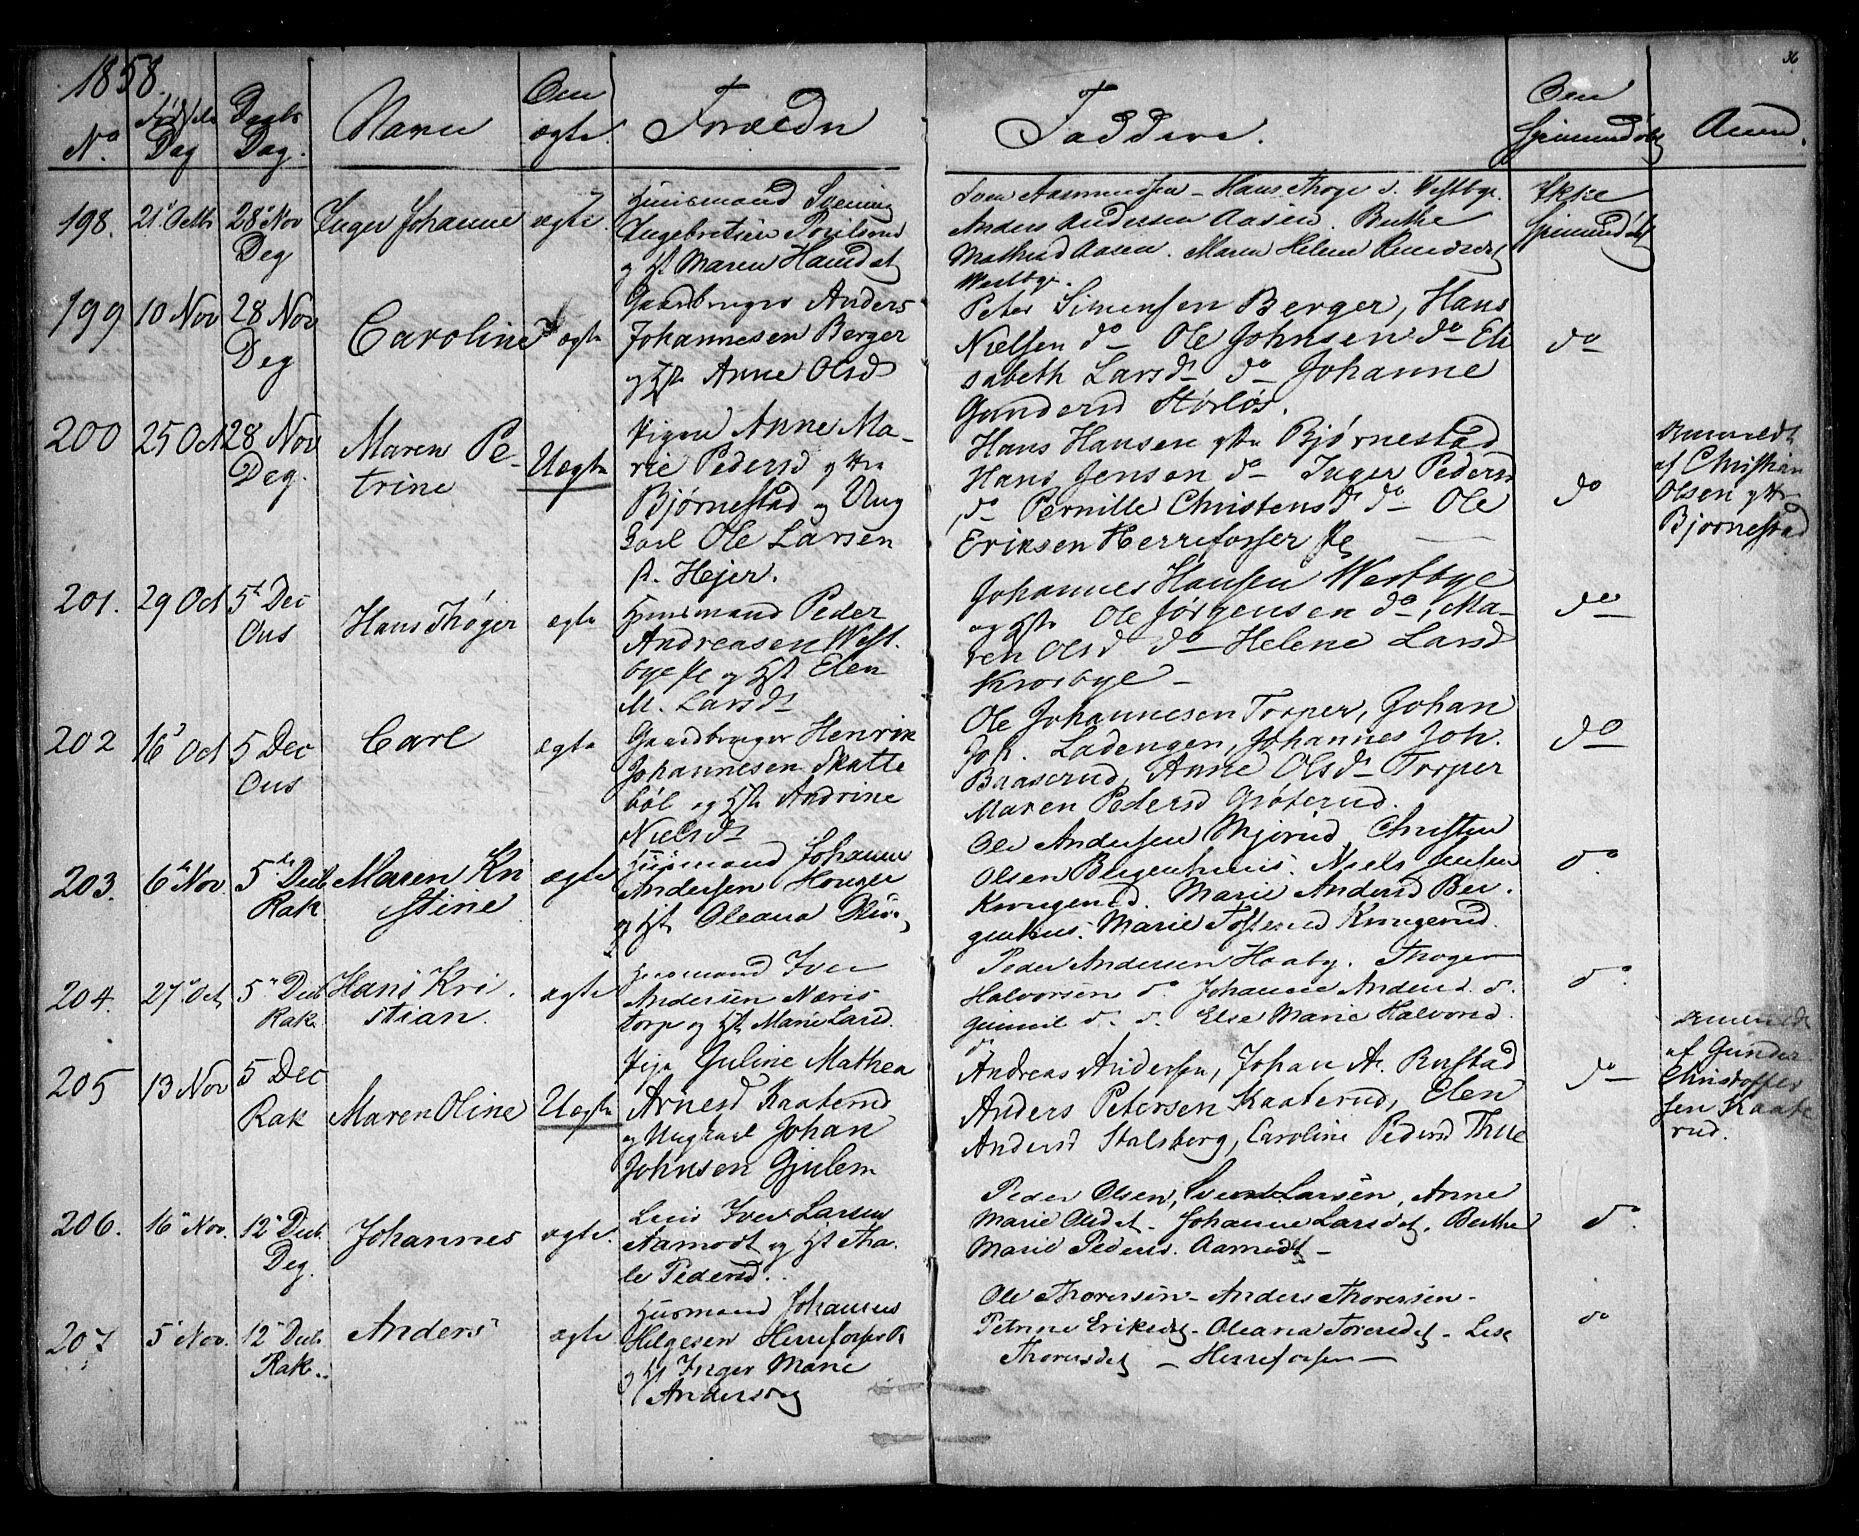 1858.
36
No
Fødsels Dag
Daabs Dag.
Navn
Om ægte.
Forældre
Faddere.
Om
Anm.
198. 21 Octb 28 Nov Deg Inger Johanne ægte
Huusmand Svening
Ingebretsen
og H Maren Hansdat
Sven Aasmundsen - Hans Thoge d. Vestbye.
Anders Andersen Aasen. Berthe
Mathisd Aasen. Maren Helene
Westbye.
Ikke
199 10 Nov 28 Nov Deg Caroline ægte
Gaardbruger Anders
Johannesen Berger
og Hst Anne Olsd
Peter Simensen Berger, Hans
Nielsen do Ole Johnsen do Eli
sabeth Larsd do Johanne
Gundersd Størløs.
do
200 25 Oct 28 Nov Deg. Maren Pe-
trine
Uægte
Pigen Anne Ma-
rie Pedersd
Bjørnestad og Ung
karl Ole Larsen
p. Hejer.
Hans Hansen Bjørnestad
Hans Jensen do Inger Pedersd
do Pernille Christensd do Ole
Eriksen Herrefosser
do
Anmeldt
af Christian
Olsen
Bjørnestad
201. 29 Oct 5t Dec Ous Hans Thøger ægte
Huusmand Peder
Andreasen West-
bye og Hst Elen
M. Larsd
Johannes Hansen Westbye
og Hst Ole Jørgensen do, Ma-
ren Olsd do Helene Larsd
Krosbye -
do
202 16 Oct 5 Dec Ous Carl ægte
Gaardbruger Henrik
Johannesen Skatte
bøl og Hst Andrine
Nielsd
Ole Johannesen Torper, Johan
Joh. Ladengen, Johannes Joh.
Baaserud, Anne Olsd Torper
Maren Pedersd Grøterud.
do
203. 6 Nov 5 Decb Rak Maren Kri
stine
ægte
Huusmand Johannes
Andersen
og Hst Oleana
Ole Andersen Mjørud Christen
Olsen Bergenhuus. Niels Jensen
Krogerud. Marie Andersd Ber-
genhus. Marie Tostensd Krogerud.
do
204. 27 Oct 5 Decb Rak. Hans Kri-
stian.
ægte
Huusmand Iver
Andersen Næris
torp og Hst Marie Larsd.
Peder Andersen Haaby. Thoger
Halvorsen do. Johanne Andersd. d.
do. Else Marie Halvorsd.
do
do
205 13 Nov 5 Dec Rak Maren Oline Uægte
Pige Guline Mathea
Arnesd Kaaterud
og Ungkarl Johan
Johnsen Gjulem
Andreas Andersen, Johan A. Rustad
Anders Petersen Kaaterud, Elen
Andersd Stalsberg, Caroline Pedersd Thue
do
Anmeldt
af Gunder
Christoffer
sen Kaate
rud.
206. 16 Nov. 12 Decb. Deg. Johannes ægte.
Leil Iver Larsen
Aamodt og Hst Tha-
le Pedersd.
Peder Olsen, Svend Larsen, Anne
Marie Olsdat - Johanne Larsdat. Berthe
Marie Peders. Aamodt -
do.
207 5 Nov. 12 Decb. Rak. Anders ægte
Huusmand Johannes
Helgesen Herrefosser
og Hst Inger Marie
Andersdg
Ole Thoresen - Anders Thoresen -
Petrine Eriksdt - Oleana Toresdt - Lise
Thoresdt - Herrefosser -
do